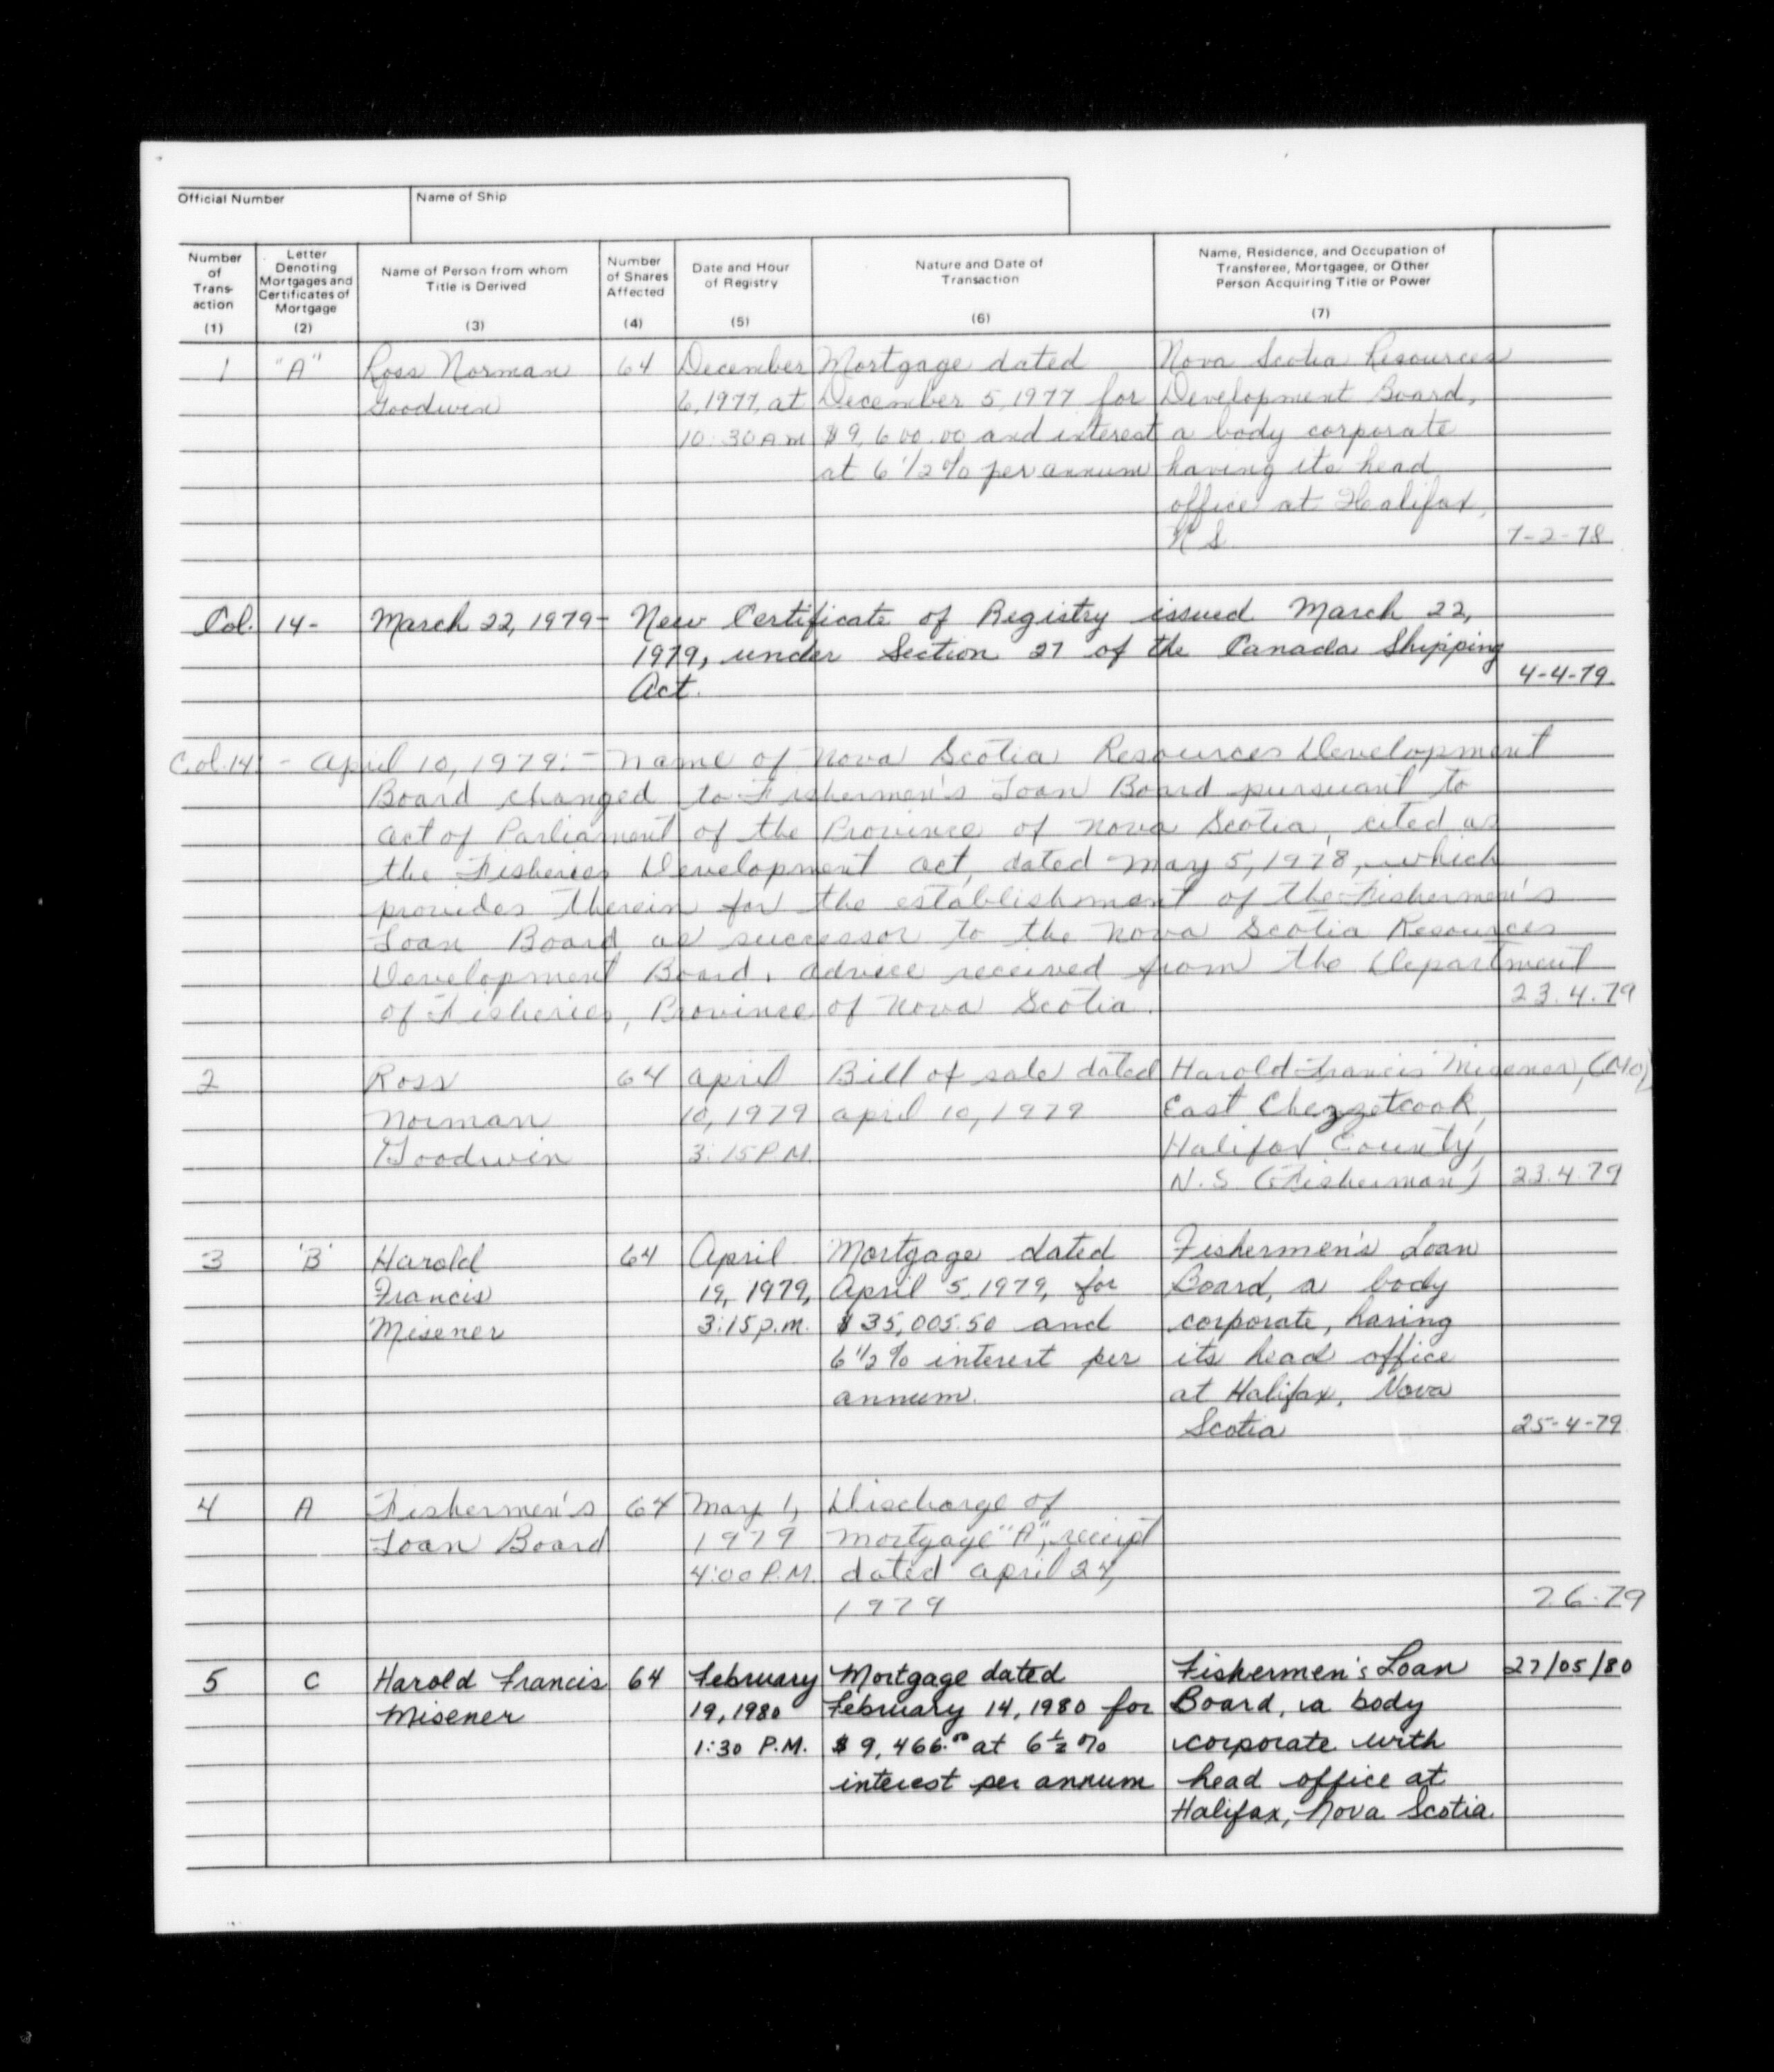 Official Number
Name of Ship
Number of Trans- action (1)
Letter Denoting Mortgages and Certificates of Mortgage (2)
Name of Person from whom Title is Derived (3)
Number of Shares Affected (4)
Date and Hour of Registry (5)
Nature and Date of Transaction (6)
Name, Residence, and Occupation of Transferee, Mortgagee, or Other Person Acquiring Title or Power (7)
1 "A" Ross Norman 64 December Mortgage dated Nova Scotia Resources
Goodwin 6, 1977, at December 5, 1977 for Development Board,
10:30 AM $9,600.00 and interest a body corporate
at 6 1/2% per annum having its head
office at Halifax,
N S 7-2-78
Col. 14- March 22, 1979- New Certificate of Registry issued March 22,
1979, under Section 27 of the Canada Shipping
Act. 4-4-79.
Col.14 - April 10, 1979:- Name of Nova Scotia Resources Development
Board changed to Fishermen's Loan Board pursuant to
Act of Parliament of the Province of Nova Scotia, cited as
the Fisheries Development Act, dated May 5, 1978, which
provides therein for the establishment of the Fishermen's
Loan Board as successor to the Nova Scotia Resources
Development Board. Advice received from the Department
of Fisheries, Province of Nova Scotia. 23.4.79
2 Ross 64 April Bill of sale dated Harold Francis Misener, (MO)
Norman 10, 1979 April 10, 1979 East Chezzetcook,
Goodwin 3:15 P.M. Halifax County,
N.S. (Fisherman) 23.4.79
3 'B' Harold 64 April Mortgage dated Fishermen's Loan
Francis 19, 1979, April 5, 1979, for Board, a body
Misener 3:15 p.m. $35,005.50 and corporate, having
6 1/2% interest per its head office
annum. at Halifax, Nova
Scotia 25-4-79
4 A Fishermen's 64 May 1, Discharge of
Loan Board 1979 Mortgage "A", receipt
4:00 P.M. dated April 24,
1979 7.6.79
5 C Harold Francis 64 February Mortgage dated Fishermen's Loan 27/05/80
Misener 19, 1980 February 14, 1980 for Board, a body
1:30 P.M. $9,466.00 at 6 1/2 % corporate with
interest per annum head office at
Halifax, Nova Scotia.